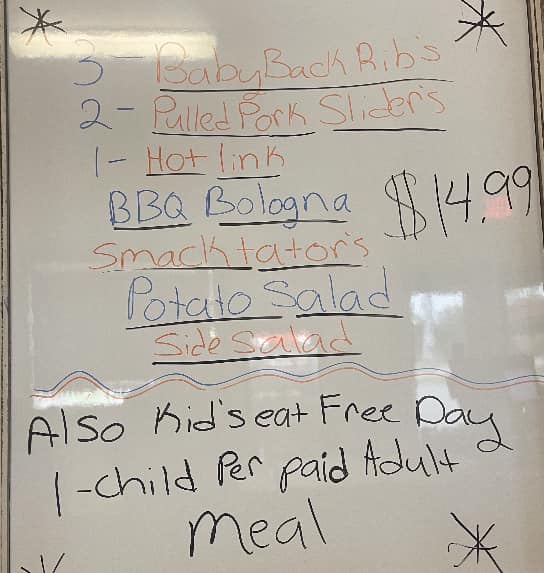 3 - Baby Back Rib's
2 - Pulled Pork Slider's
1 - Hot link
BBQ Bologna
$14.99
Smacktator's
Potato Salad
Side Salad
Also Kid's eat Free Day
1 - child Per paid Adult
meal